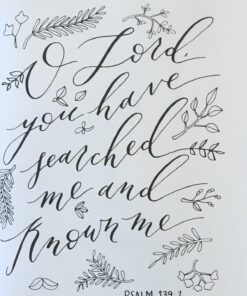 O Lord,
you have
searched
me and
known me
PSALM 139:1